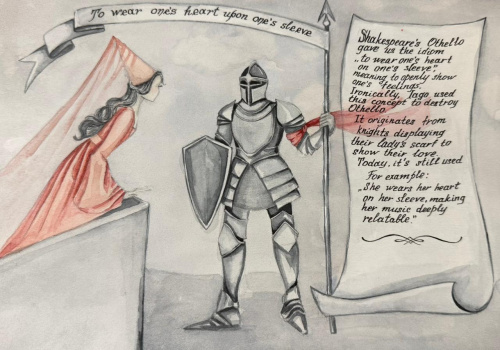 To wear one's heart upon one's sleeve
Shakespeare's Othello
gave us the idiom
„to wear one's heart
on one's sleeve",
meaning to openly show
one's feelings.
Ironically, Iago used
this concept to destroy
Othello.
It originates from
knights displaying
their lady's scarf to
show their love.
Today, it's still used
For example:
„She wears her heart
on her sleeve, making
her music deeply
relatable."